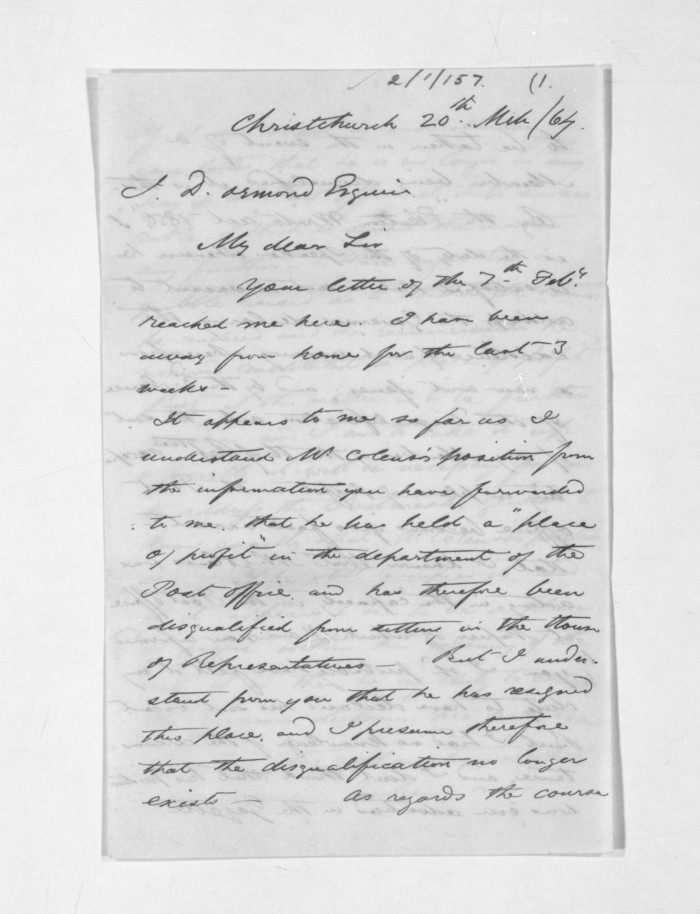 2/1/157. (1.
Christchurch 20th Mch/64.
J. D. Ormond Esquire
My dear Sir
Your letter of the 7th Feby.
reached me here. I have been
away from home for the last 3
weeks —
It appears to me so far as I
understand Mr Colenso's position from
the information you have forwarded
to me. that he has held a "place
of profit" in the department of the
Post office and has therefore been
disqualified from sitting in the House
of Representatives — But I under-
stand from you that he has resigned
this place, and I presume therefore
that the disqualification no longer
exists — As regards the course